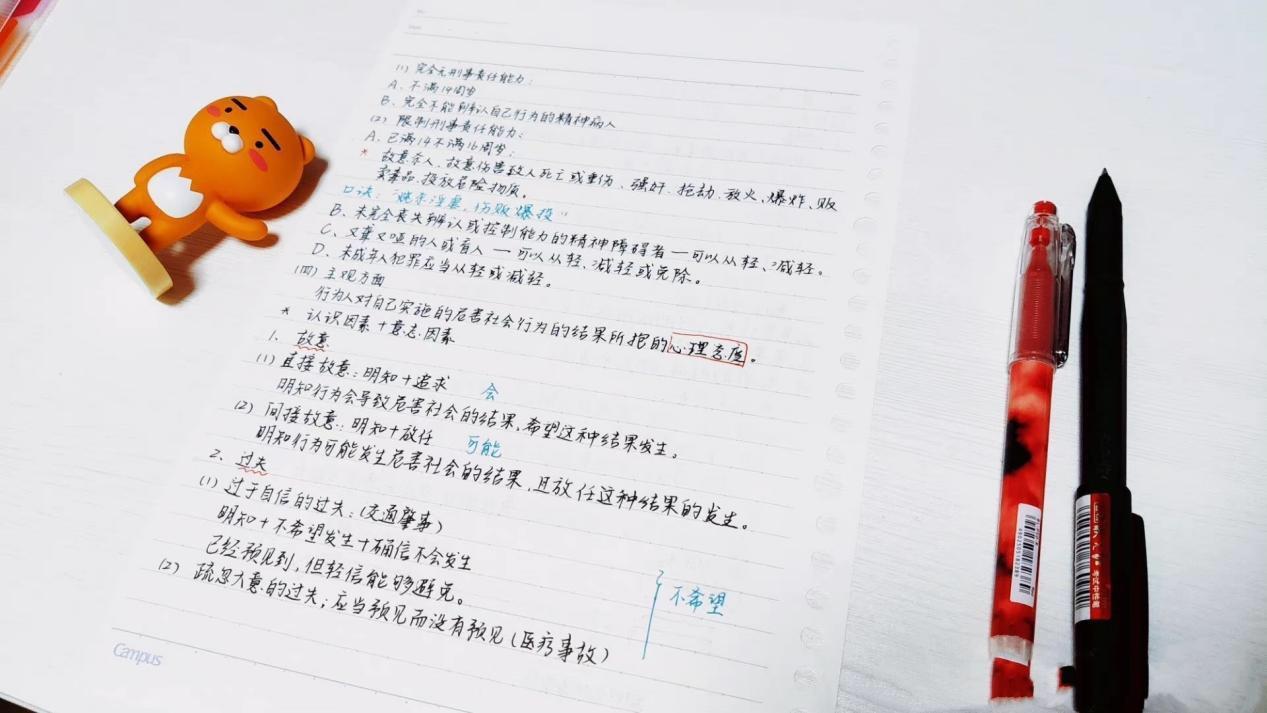 (1) 完全无刑事责任能力:
A、不满14周岁
B、完全不能辨认自己行为的精神病人
(2) 限制刑事责任能力:
A、已满14不满16周岁:
* 故意杀人、故意伤害致人死亡或重伤、强奸、抢劫、放火、爆炸、贩
卖毒品、投放危险物质。
口诀:
伤贩爆投"
B、未完全丧失辨认或控制能力的精神障碍者—可以从轻、减轻。
C、又聋又哑的人或盲人—可以从轻、减轻或免除。
D、未成年人犯罪应当从轻或减轻。
(四) 主观方面
行为人对自己实施的危害社会行为的结果所抱的心理态度。
* 认识因素+意志因素
1、故意
(1) 直接故意:明知+追求 会
明知行为会导致危害社会的结果,希望这种结果发生。
(2) 间接故意:明知+放任 可能
明知行为可能发生危害社会的结果,且放任这种结果的发生。
2、过失
(1) 过于自信的过失:(交通肇事)
明知+不希望发生+确信不会发生
已经预见到,但轻信能够避免。
(2) 疏忽大意的过失;应当预见而没有预见(医疗事故)
不希望
Campus